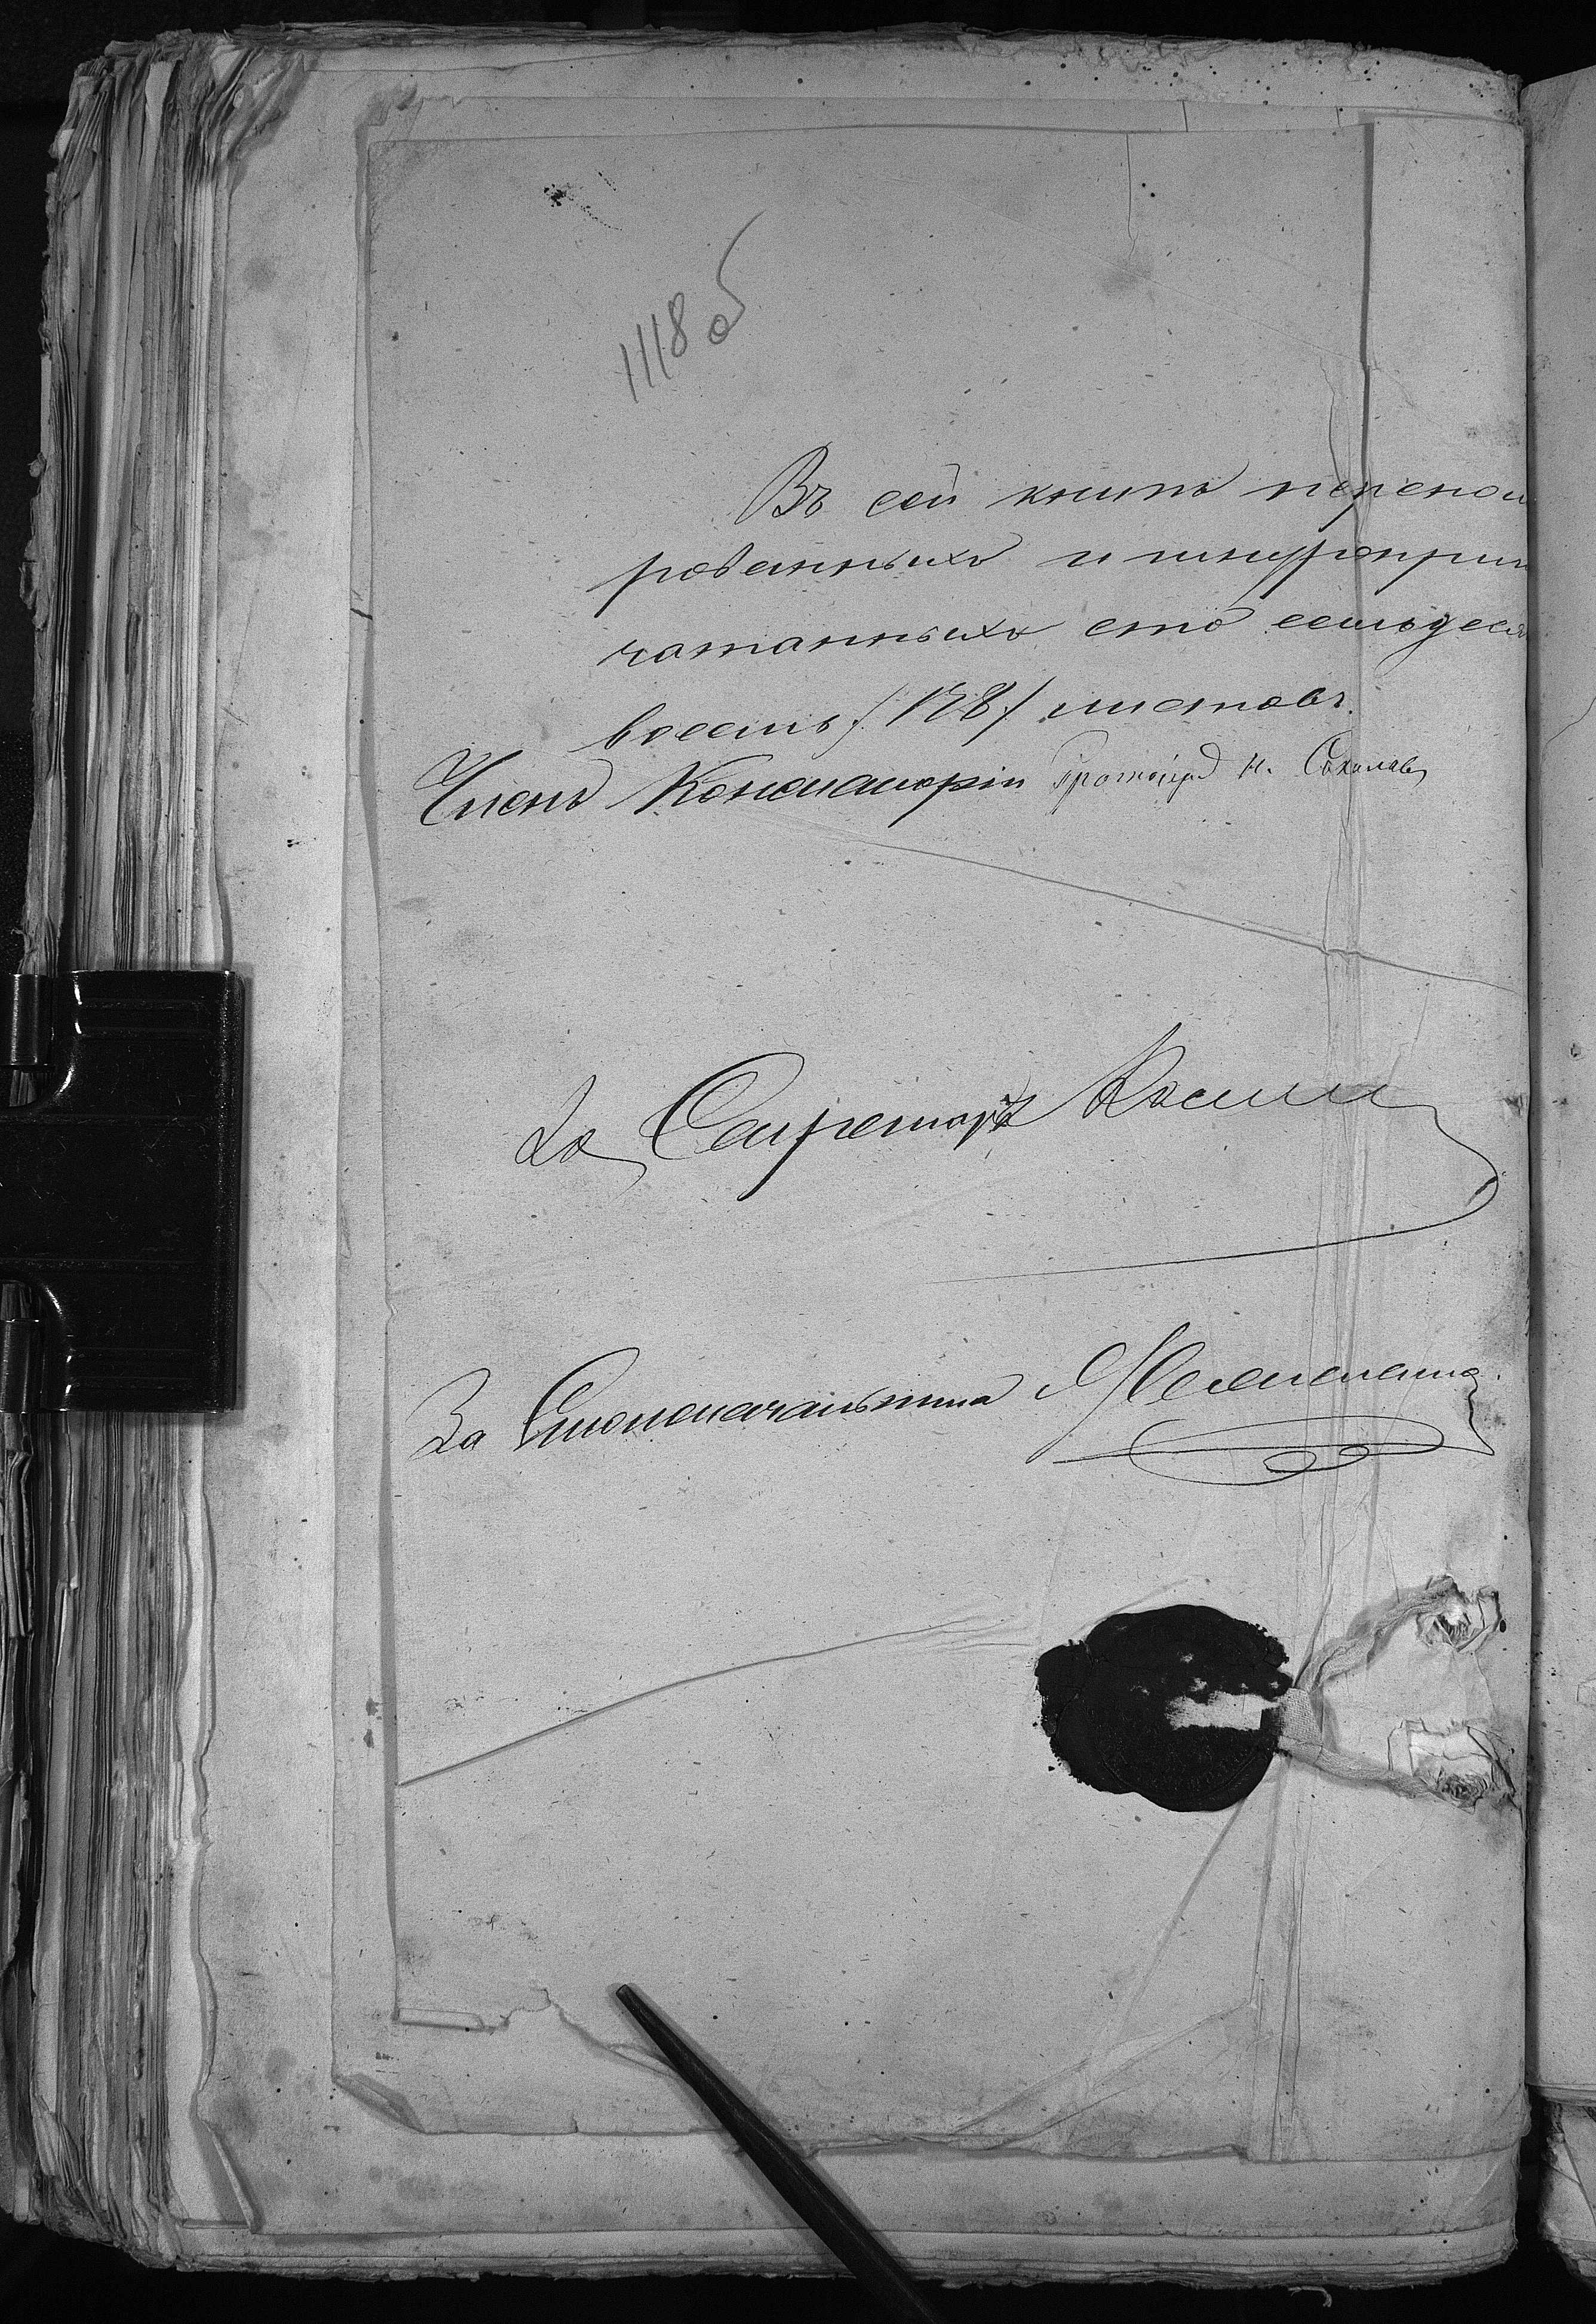 1118 об
Въ сей книгѣ перенои
рованныхъ и шнуроприп
чатанныхъ сто семьдеся
восемь /178/ листовъ.
Членъ Консисторіи Протоіер Н. Соколовъ
За Секретаря
За Столоначальника